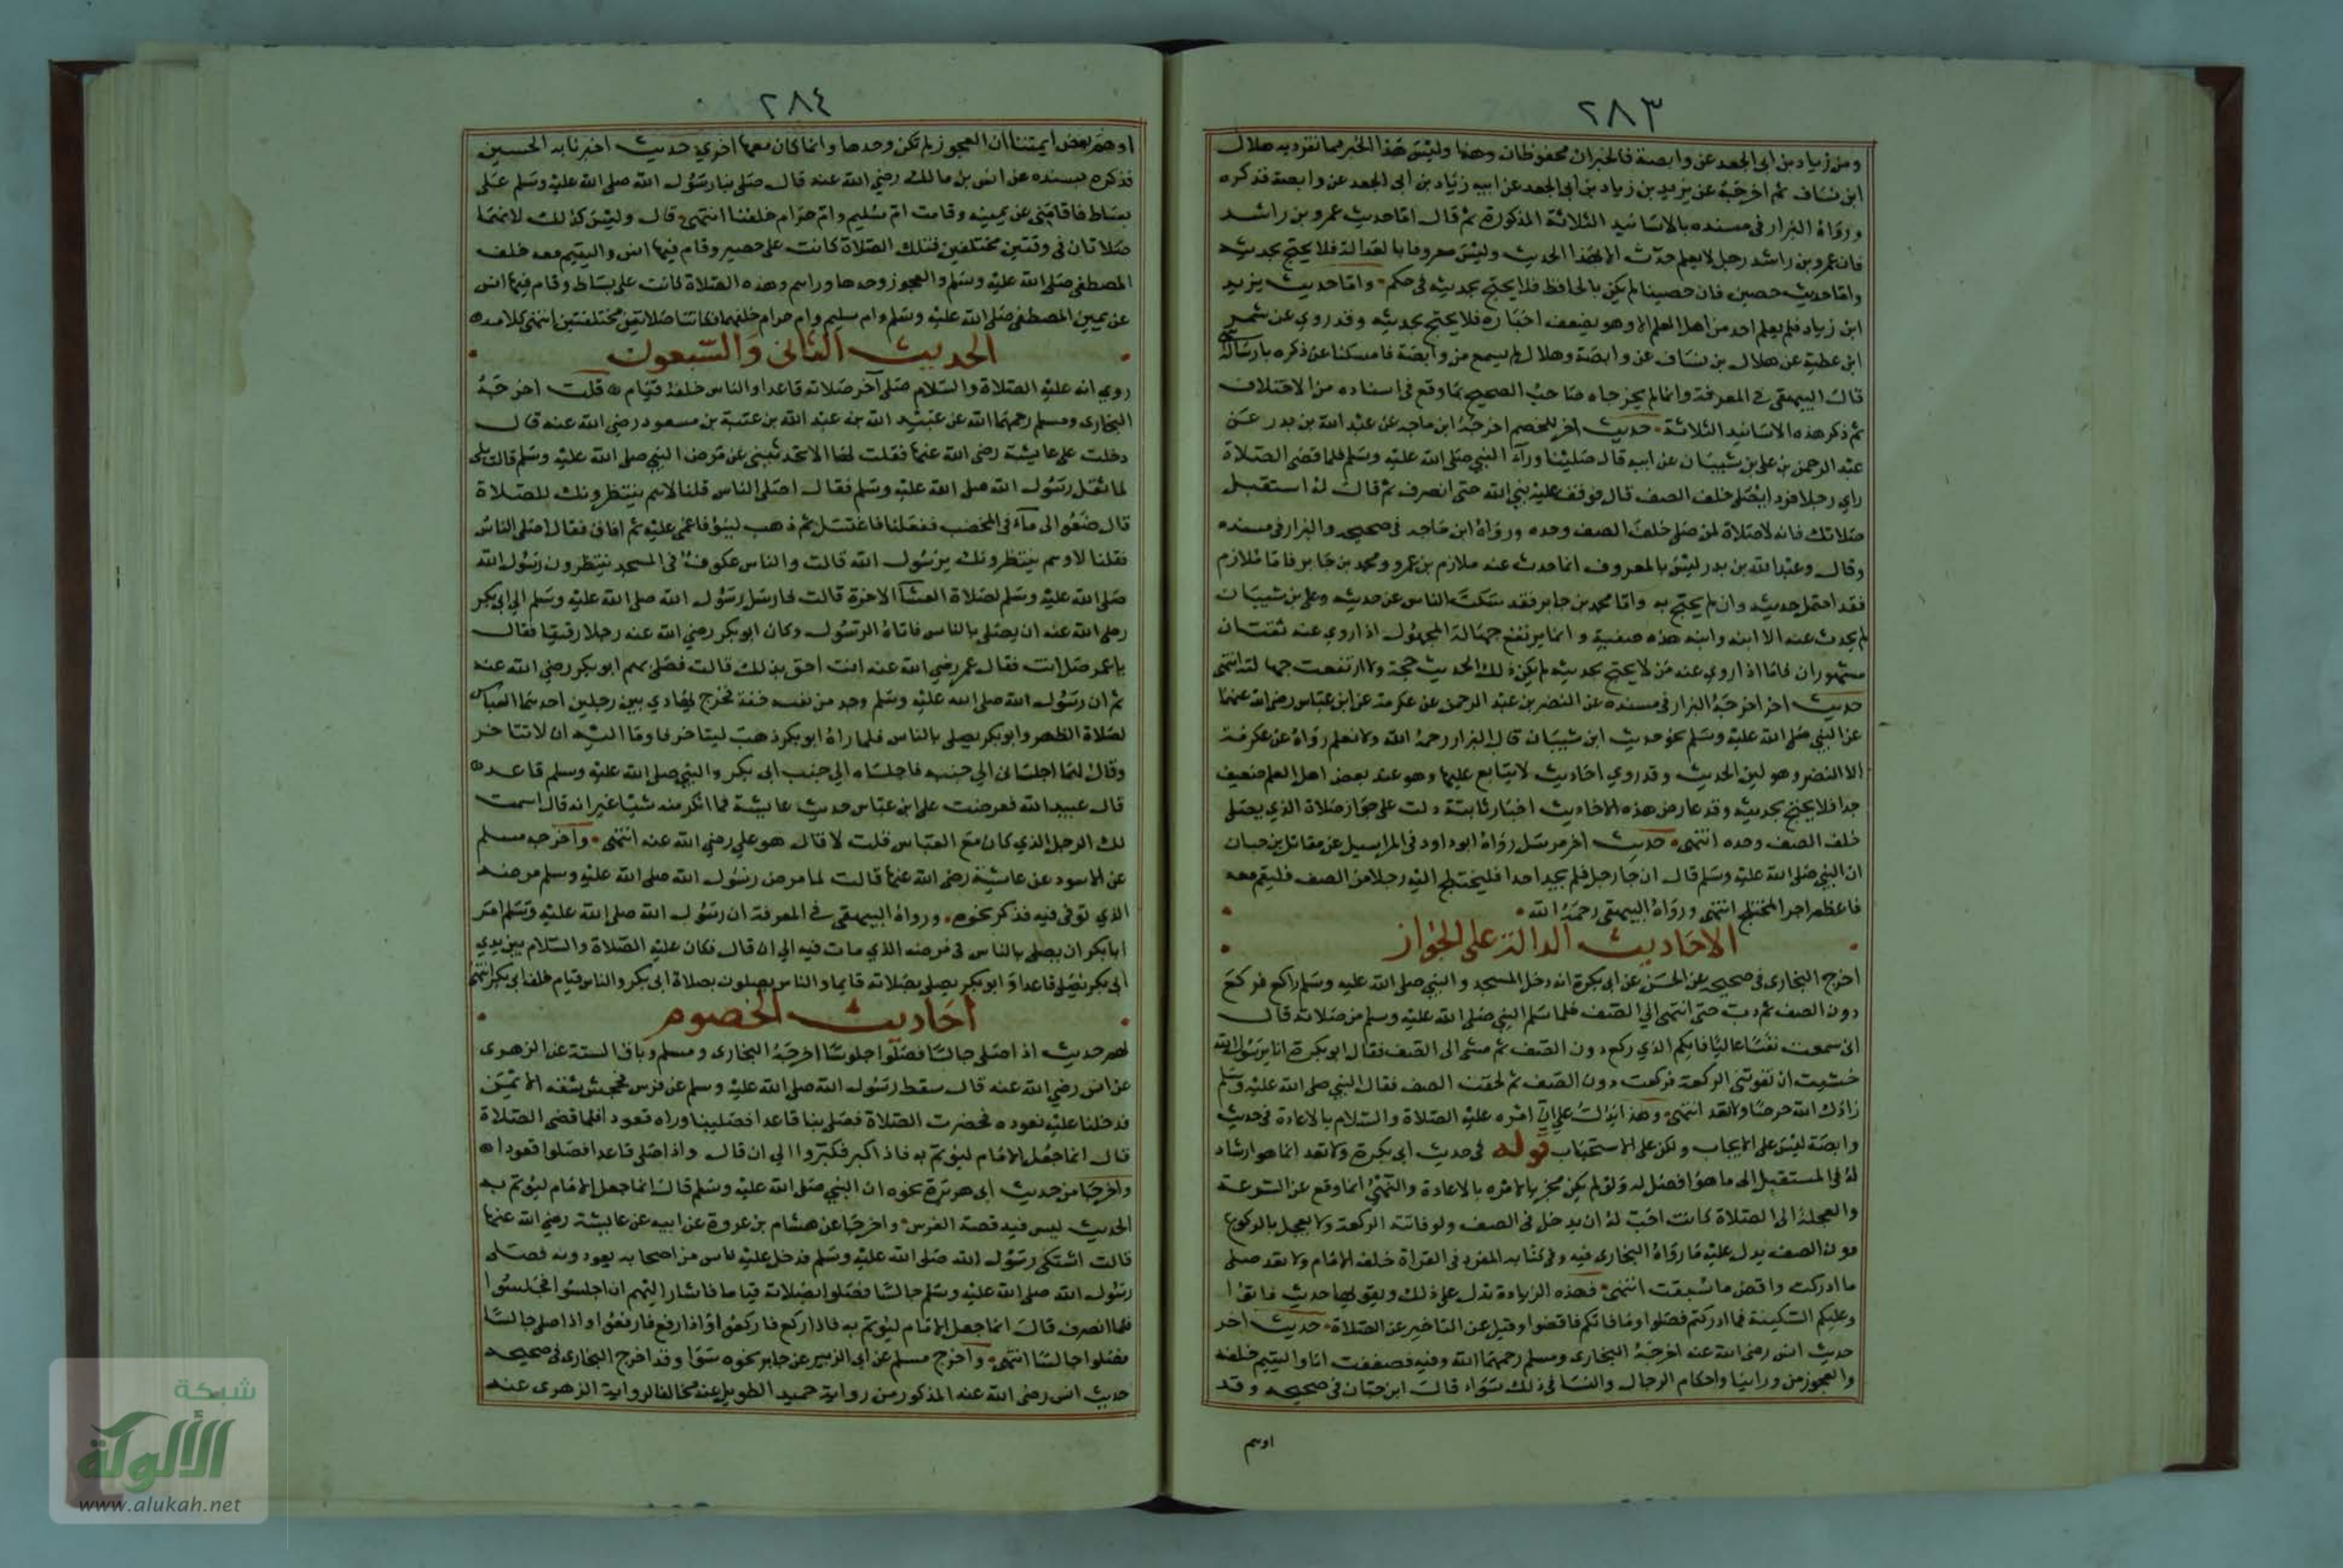 ٢٨٣
ومن زياد بن ابي الجعد عن وابصة فالخبران محفوظان وهذا وليس هذا الخبر مما تفرد به هلال
ابن يساف ثم اخرجه عن يزيد بن زياد بن ابي الجعد عن ابيه زياد بن ابي الجعد عن وابصة فذكره
ورواه البزار في مسنده بالاسانيد الثلاثة المذكورة ثم قال اما حديث عمرو بن راشد
فان عمرو بن راشد رجل لا يعلم حدث الا بهذا الحديث وليس معروفا بالعدالة فلا يحتج بحديثه
واما حديث حصين فان حصينا لم يكن بالحافظ فلا يحتج بحديثه في حكم واما حديث يزيد
ابن زياد فلم يعلم احد من اهل العلم الا وهو يضعف اخباره فلا يحتج بحديثه وقد روي عن شمر
ابن عطية عن هلال بن يساف عن وابصة وهلال لم يسمع من وابصة فامسكنا عن ذكره بارساله
قال البيهقي في المعرفة وانما لم يخرجاه صاحبا الصحيح لما وقع في اسناده من الاختلاف
ثم ذكر هذه الاسانيد الثلاثة حديث اخر للخصم اخرجه ابن ماجه عن عبد الله بن بدر عن
عبد الرحمن بن علي بن شيبان عن ابيه قال صلينا وراء النبي صلى الله عليه وسلم فلما قضى الصلاة
راى رجلا فردا يصلي خلف الصف قال فوقف عليه نبي الله حتى انصرف ثم قال له استقبل
صلاتك فانه لا صلاة لمن صلى خلف الصف وحده ورواه ابن ماجه في صحيحه والبزار في مسنده
وقال وعبد الله بن بدر ليس بالمعروف انما حدث عنه ملازم بن عمرو ومحمد بن جابر فاما ملازم
فقد احتمل حديثه وان لم يحتج به واما محمد بن جابر فقد سكت الناس عن حديثه وعلي بن شيبان
لم يحدث عنه الا ابنه وابنه هذه صفته وانما يرتفع جهالة المجهول اذا روي عنه ثقتان
مشهوران فاما اذا روي عنه من لا يحتج بحديثه لم يكن ذلك الحديث حجة ولا ارتفعت جهالته انتهى
حديث اخر اخرجه البزار في مسنده عن النضر بن عبد الرحمن عن عكرمة عن ابن عباس رضي الله عنهما
عن النبي صلى الله عليه وسلم نحو حديث ابن شيبان قال البزار رحمه الله ولا نعلم رواه عن عكرمة
الا النضر وهو لين الحديث وقد روي احاديث لا يتابع عليها وهو عند بعض اهل العلم ضعيف
جدا فلا يحتج بحديثه وقد عارض هذه الاحاديث اخبار ثابتة دلت على جواز صلاة الذي يصلي
خلف الصف وحده انتهى حديث اخر مرسل رواه ابو داود في المراسيل عن مقاتل بن حيان
ان النبي صلى الله عليه وسلم قال ان جا رجل فلم يجد احدا فليختلج اليه رجلا من الصف فليقم معه
فاعظم اجر المختلج انتهى ورواه البيهقي رحمه الله
الاحاديث الدالة على الجواز
اخرج البخاري في صحيحه عن الحسن عن ابي بكرة انه دخل المسجد والنبي صلى الله عليه وسلم راكع فركع
دون الصف ثم دب حتى انتهى الى الصف فلما سلم النبي صلى الله عليه وسلم من صلاته قال
اني سمعت نفسا عاليا فايكم الذي ركع دون الصف ثم مشى الى الصف فقال ابو بكرة انا يرسول الله
خشيت ان تفوتني الركعة فركعت دون الصف ثم لحقت الصف فقال النبي صلى الله عليه وسلم
زادك الله حرصا ولا تعد انتهى وهذا يدل على ان امره عليه الصلاة والسلام بالاعادة في حديث
وابصة ليس على الايجاب ولكن على الاستحباب قوله في حديث ابي بكرة ولا تعد انما هو ارشاد
له في المستقبل الى ما هو افضل له ولو لم يكن مجزيا لامره بالاعادة والنهي انما وقع عن السرعة
والعجلة الى الصلاة كانت احب له ان يدخل في الصف ولو فاتته الركعة ولا يعجل بالركوع
دون الصف يدل عليه ما رواه البخاري فيه وفي كتابه المفرد في القراة خلف الامام ولا تعد صلي
ما ادركت واقض ما سبقت انتهى فهذه الزيادة تدل على ذلك ويقويها حديث فاتوا
وعليكم السكينة فما ادركتم فصلوا وما فاتكم فاقضوا وقيل عن التاخير عن الصلاة حديث اخر
حديث انس رضي الله عنه اخرجه البخاري ومسلم رحمهما الله وفيه فصففت انا واليتيم خلفه
والعجوز من ورائيا واحكام الرجال والنسا في ذلك سواء قال ابن حبان في صحيحه وقد
اوهم
٢٨٤
اوهم بعض ايمتنا ان العجوز لم تكن وحدها وانما كان معها اخرى حديث اخبرنا به الحسين
فذكره بسنده عن انس بن مالك رضي الله عنه قال صلى بنا رسول الله صلى الله عليه وسلم على
بساط فاقامني عن يمينه وقامت ام سليم وام حرام خلفنا انتهى قال وليس كذلك لانهما
صلاتان في وقتين مختلفين فتلك الصلاة كانت على حصير وقام فيها انس واليتيم معه خلف
المصطفى صلى الله عليه وسلم والعجوز وحدها وراهم وهذه الصلاة كانت على بساط وقام فيها انس
عن يمين المصطفى صلى الله عليه وسلم وام سليم وام حرام خلفهما فكانتا صلاتين مختلفتين انتهى كلامه
الحديث الثاني والسبعون
روي انه عليه الصلاة والسلام صلى آخر صلاته قاعدا والناس خلفه قيام قلت اخرجه
البخاري ومسلم رحمهما الله عن عبيد الله بن عبد الله بن عتبة بن مسعود رضي الله عنه قال
دخلت على عايشة رضي الله عنها فقلت لها الا تحدثيني عن مرض النبي صلى الله عليه وسلم قالت بلى
لما ثقل رسول الله صلى الله عليه وسلم فقال اصلى الناس قلنا لا هم ينتظرونك للصلاة
قال ضعوا لي مآء في المخضب ففعلنا فاغتسل ثم ذهب لينوء فاغمي عليه ثم افاق فقال اصلى الناس
فقلنا لا وهم ينتظرونك يرسول الله قالت والناس عكوف في المسجد ينتظرون رسول الله
صلى الله عليه وسلم لصلاة العشآ الاخرة قالت فارسل رسول الله صلى الله عليه وسلم الى ابي بكر
رضي الله عنه ان يصلي بالناس فاتاه الرسول وكان ابو بكر رضي الله عنه رجلا رقيقا فقال
يا عمر صل انت فقال عمر رضي الله عنه انت احق بذلك قالت فصلى بهم ابو بكر رضي الله عنه
ثم ان رسول الله صلى الله عليه وسلم وجد من نفسه خفة فخرج يهادي بين رجلين احدهما العباس
لصلاة الظهر وابو بكر يصلي بالناس فلما راه ابو بكر ذهب ليتاخر فاوما اليه ان لا تتاخر
وقال لهما اجلساني الى جنبه فاجلساه الى جنب ابي بكر والنبي صلى الله عليه وسلم قاعد
قال عبيد الله فعرضت على ابن عباس حديث عايشة فما انكر منه شيئا غير انه قال اسمت
لك الرجل الذي كان مع العباس قلت لا قال هو علي رضي الله عنه انتهى واخرجه مسلم
عن الاسود عن عايشة رضي الله عنها قالت لما مرض رسول الله صلى الله عليه وسلم مرضه
الذي توفي فيه فذكر نحوه ورواه البيهقي في المعرفة ان رسول الله صلى الله عليه وسلم امر
ابا بكر ان يصلي بالناس في مرضه الذي مات فيه الى ان قال فكان عليه الصلاة والسلام بين يدي
ابي بكر يصلي قاعدا وابو بكر يصلي بصلاته قايما والناس يصلون بصلاة ابي بكر والناس قيام خلف ابي بكر انتهى
احاديث الخصوم
لهم حديث اذا صلى جالسا فصلوا جلوسا اخرجه البخاري ومسلم وباقي الستة عن الزهري
عن انس رضي الله عنه قال سقط رسول الله صلى الله عليه وسلم عن فرس فجحش شقه الايمن
فدخلنا عليه نعوده فحضرت الصلاة فصلى بنا قاعدا فصلينا وراه قعودا فلما قضى الصلاة
قال انما جعل الامام ليؤتم به فاذا كبر فكبروا الى ان قال واذا صلى قاعدا فصلوا قعودا
واخرجا من حديث ابي هريرة نحوه ان النبي صلى الله عليه وسلم قال انما جعل الامام ليؤتم به
الحديث ليس فيه قصة الفرس واخرجا عن هشام بن عروة عن ابيه عن عايشة رضي الله عنها
قالت اشتكى رسول الله صلى الله عليه وسلم فدخل عليه ناس من اصحابه يعودونه فصلى
رسول الله صلى الله عليه وسلم جالسا فصلوا بصلاته قياما فاشار اليهم ان اجلسوا فجلسوا
فلما انصرف قال انما جعل الامام ليؤتم به فاذا ركع فاركعوا واذا رفع فارفعوا واذا صلى جالسا
فصلوا جالسا انتهى واخرج مسلم عن ابي الزبير عن جابر نحوه سوا وقد اخرج البخاري في صحيحه
حديث انس رضي الله عنه المذكور من رواية حميد الطويل عنه مخالفا لرواية الزهري عنه
شبكة
الألوكة
www.alukah.net